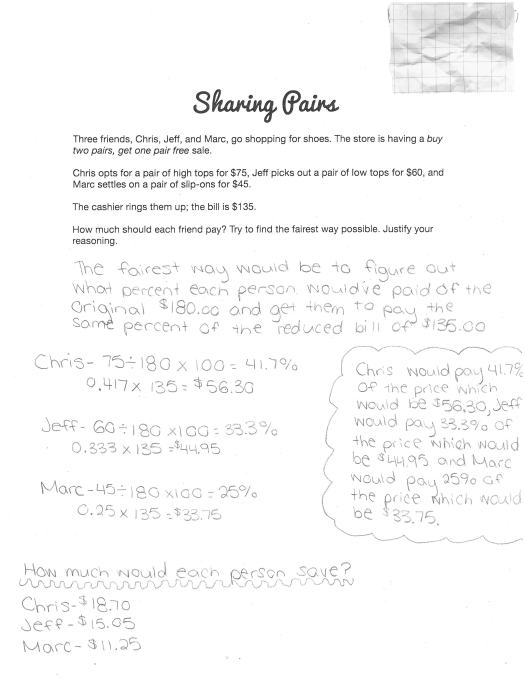 Sharing Pairs
Three friends, Chris, Jeff, and Marc, go shopping for shoes. The store is having a buy
two pairs, get one pair free sale.
Chris opts for a pair of high tops for $75, Jeff picks out a pair of low tops for $60, and
Marc settles on a pair of slip-ons for $45.
The cashier rings them up; the bill is $135.
How much should each friend pay? Try to find the fairest way possible. Justify your
reasoning.
The fairest way would be to figure out
what percent each person would've paid of the
original $180.00 and get them to pay the
same percent of the reduced bill of $135.00
Chris- 75÷180 x 100 = 41.7%
0.417 x 135 = $56.30
Jeff- 60÷180 x100 = 33.3%
0.333 x 135 =$44.95
Marc-45÷180 x100 = 25%
0.25 x 135 =$33.75
Chris would pay 41.7%
of the price which
would be $56.30, Jeff
would pay 33.3% of
the price which would
be $44.95 and Marc
would pay 25% of
the price which would
be $33.75.
How much would each person save?
Chris-$18.70
Jeff-$15.05
Marc-$11.25